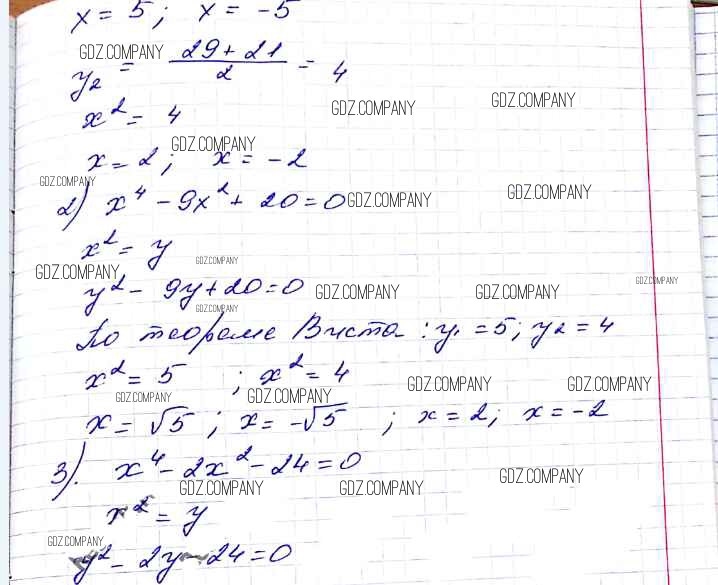 x = 5; x = -5
GDZ.COMPANY
y₂ = (29 + 21)/2 = 4
GDZ.COMPANY GDZ.COMPANY
x² = 4
GDZ.COMPANY
x = 2; x = -2
GDZ.COMPANY
2) x⁴ - 9x² + 20 = 0 GDZ.COMPANY GDZ.COMPANY
x² = y
GDZ.COMPANY GDZ.COMPANY GDZ.COMPANY
y² - 9y + 20 = 0 GDZ.COMPANY GDZ.COMPANY
GDZ.COMPANY
По теореме Виета: y₁ = 5; y₂ = 4
x² = 5 ; x² = 4
GDZ.COMPANY GDZ.COMPANY GDZ.COMPANY GDZ.COMPANY
x = √5 ; x = -√5 ; x = 2; x = -2
3). x⁴ - 2x² - 24 = 0
GDZ.COMPANY GDZ.COMPANY GDZ.COMPANY
x² = y
GDZ.COMPANY
y² - 2y - 24 = 0